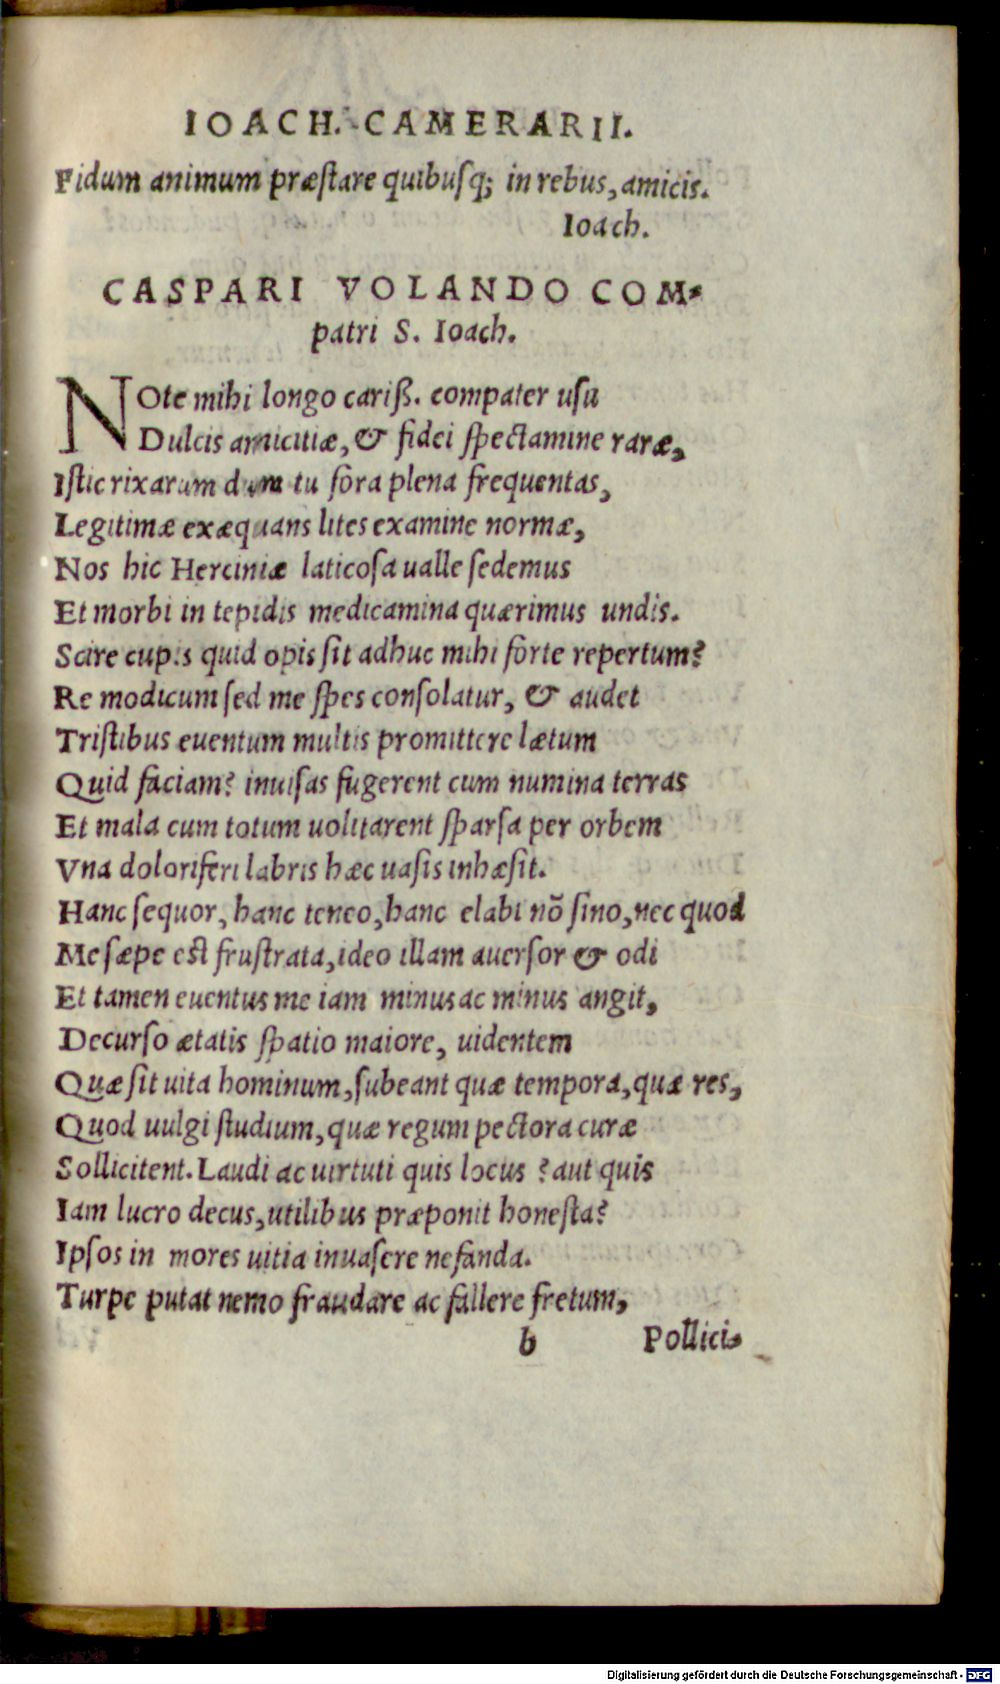 IOACH. CAMERARII.
Fidum animum præſtare quibuſq; in rebus, amicis.
Ioach.
CASPARI VOLANDO COM-
patri S. Ioach.
NOte mihi longo cariß. compater uſu
Dulcis amicitiæ, & fidei ſpectamine raræ,
Iſtic rixarum dum tu fora plena frequentas,
Legitimæ exæquans lites examine normæ,
Nos hic Herciniæ laticoſa ualle ſedemus
Et morbi in tepidis medicamina quærimus undis.
Scire cupis quid opis ſit adhuc mihi forte repertum?
Re modicum ſed me ſpes conſolatur, & audet
Triſtibus euentum multis promittere lætum
Quid faciam? inuiſas fugerent cum numina terras
Et mala cum totum uolitarent ſparſa per orbem
Vna doloriferi labris hæc uaſis inhæſit.
Hanc ſequor, hanc teneo, hanc elabi nō ſino, nec quod
Me ſæpe eſt fruſtrata, ideo illam auerſor & odi
Et tamen euentus me iam minus ac minus angit,
Decurſo ætatis ſpatio maiore, uidentem
Quæ ſit uita hominum, ſubeant quæ tempora, quæ res,
Quod uulgi ſtudium, quæ regum pectora curæ
Sollicitent. Laudi ac uirtuti quis locus ? aut quis
Iam lucro decus, utilibus præponit honeſta?
Ipſos in mores uitia inuaſere nefanda.
Turpe putat nemo fraudare ac fallere fretum,
b Pollici-
Digitalisierung gefördert durch die Deutsche Forschungsgemeinschaft - DFG